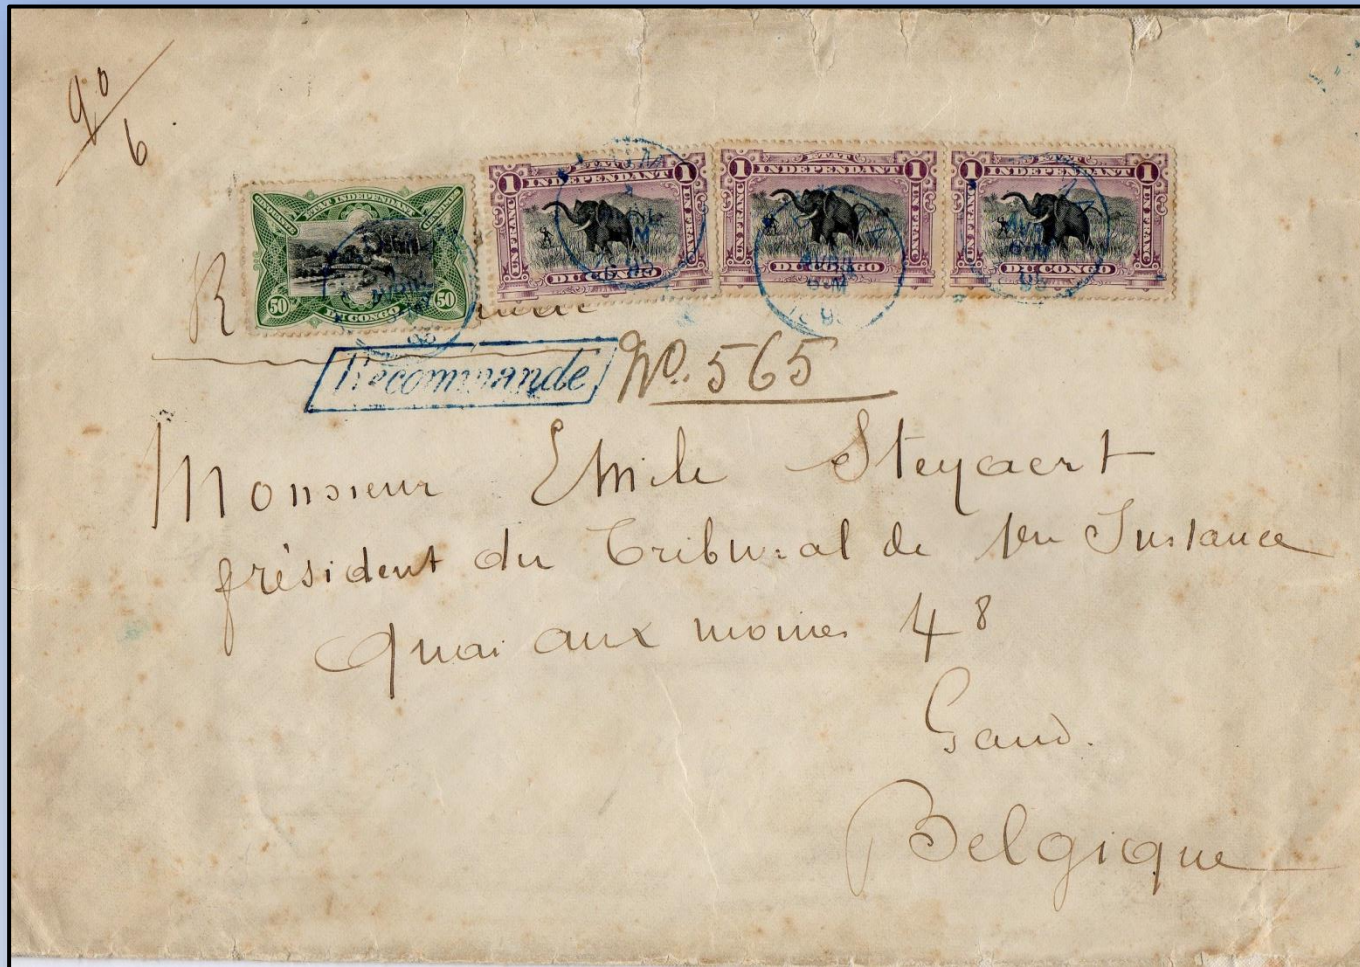 90
6
1 ETAT 1
INDEPENDANT
UN FRANC UN FRANC
DU CONGO
1 ETAT 1
INDEPENDANT
UN FRANC UN FRANC
DU CONGO
1 ETAT 1
INDEPENDANT
UN FRANC UN FRANC
DU CONGO
ETAT INDEPENDANT
CINQUANTE CENTIMES
50 DU CONGO 50
R
Recommandé No. 565
Monsieur Emile Steyaert
président du Tribunal de 1ere Instance
Quai aux moines 48
Gand.
Belgique